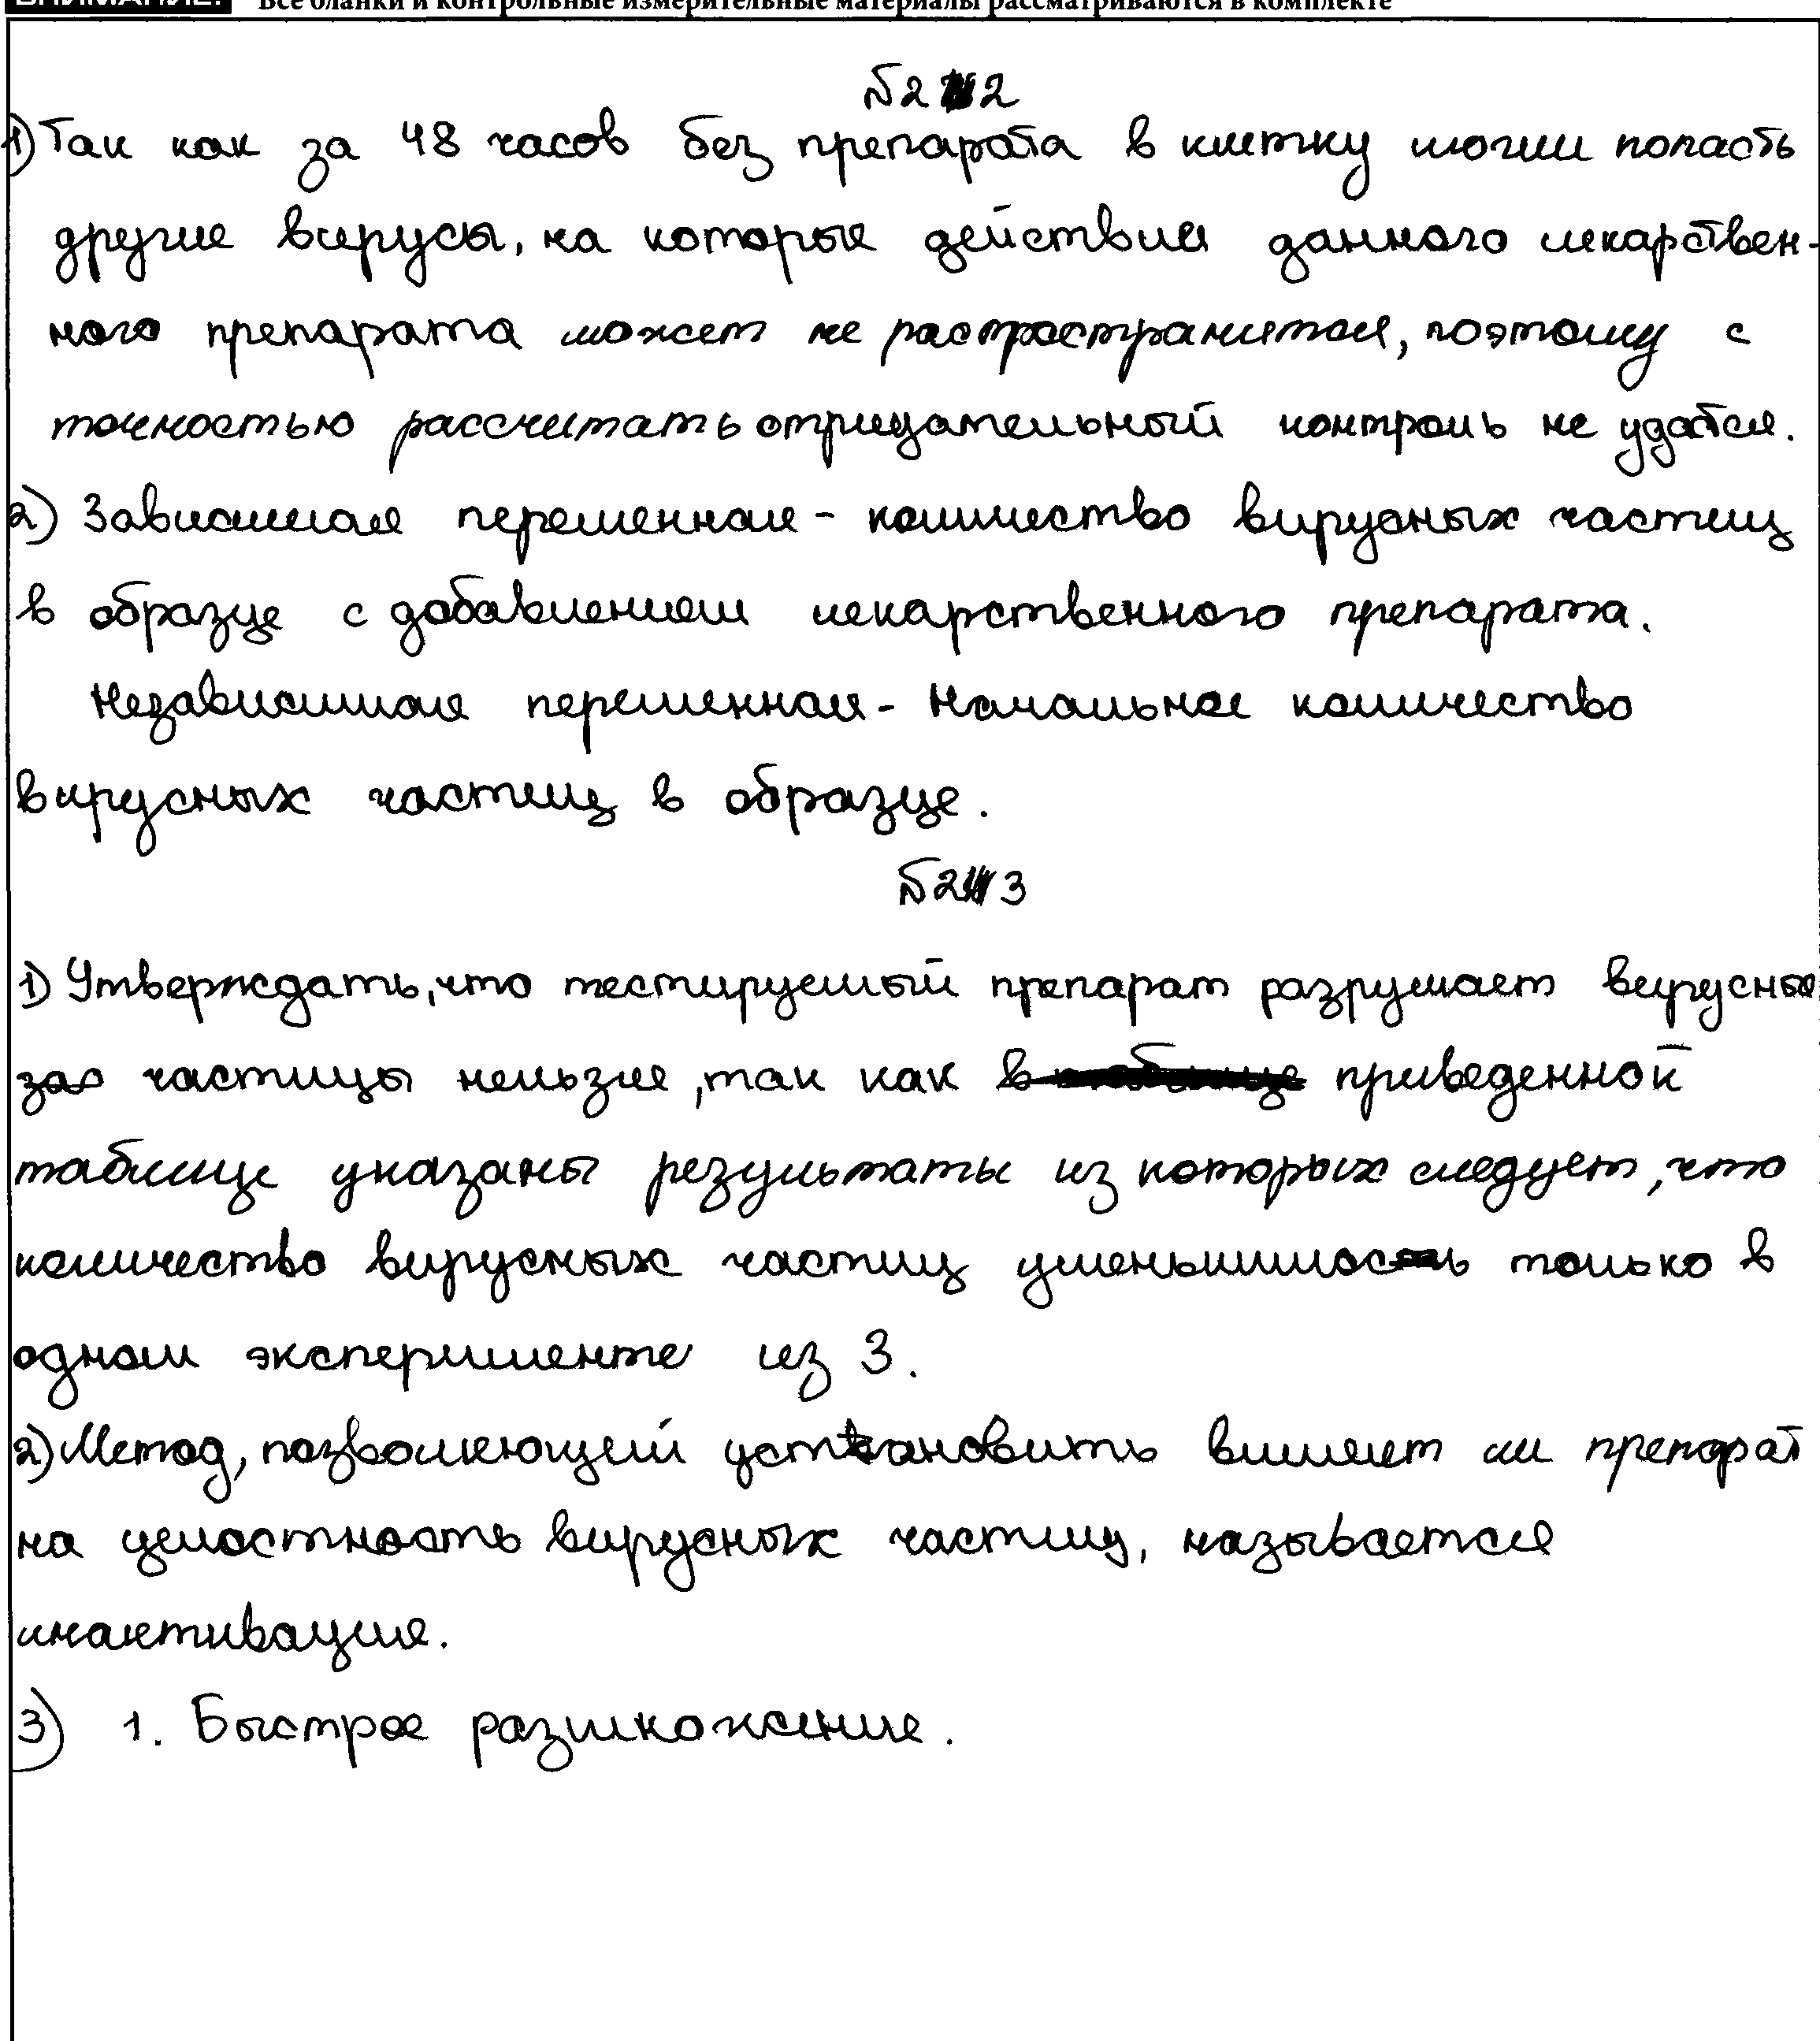 ВНИМАНИЕ! Все бланки и контрольные измерительные материалы рассматриваются в комплекте
№22
1) Так как за 48 часов без препарата в клетку могли попасть
другие вирусы, на которые действия данного лекарствен-
ного препарата может не распространится, поэтому с
точностью рассчитать отрицательный контроль не удастся.
2) Зависимая переменная - количество вирусных частиц
в образце с добавлением лекарственного препарата.
Независимая переменная - Начальное количество
вирусных частиц в образце.
№23
1) Утверждать, что тестируемый препарат разрушает вирусные
частицы нельзя, так как приведенной
таблице указаны результаты из которых следует, что
количество вирусных частиц уменьшилось только в
одном эксперименте из 3.
2) Метод, позволяющий установить влияет ли препарат
на целостность вирусных частиц, называется
инактивация.
3) 1. Быстрое размножение.